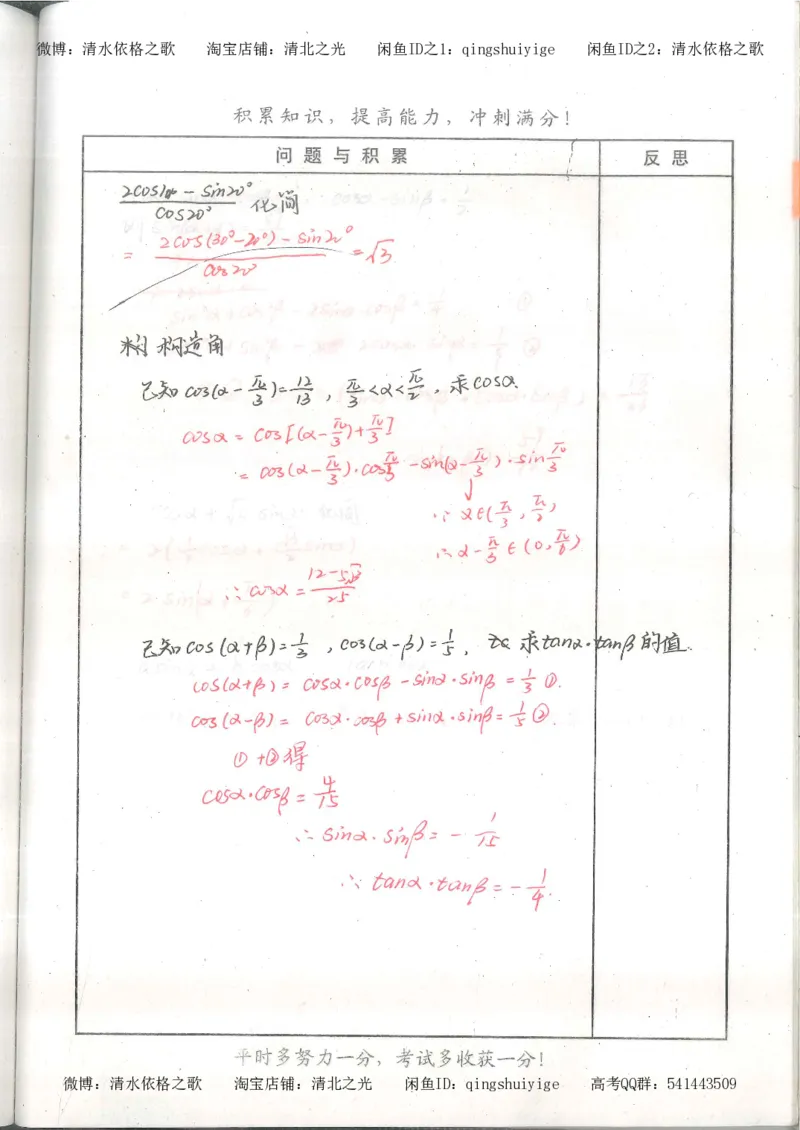 微博：清水依格之歌 淘宝店铺：清北之光 闲鱼ID之1：qingshuiyige 闲鱼ID之2：清水依格之歌
积累知识，提高能力，冲刺满分！
问题与积累 反思
(2cos10° - sin20°)/cos20° 化简
= (2cos(30°-20°) - sin20°)/cos20° = √3
构造角
已知cos(α-π/3)=12/13，π/3<α<π/2，求cosα.
cosα = cos[(α-π/3)+π/3]
= cos(α-π/3)·cosπ/3 - sin(α-π/3)·sinπ/3
↓
∵ α∈(π/3, π/2)
∴ α-π/3 ∈ (0, π/6)
∴ cosα =
已知cos(α+β)=1/3，cos(α-β)=1/5，求tanα·tanβ的值.
cos(α+β) = cosα·cosβ - sinα·sinβ = 1/3 ①.
cos(α-β) = cosα·cosβ + sinα·sinβ = 1/5 ②.
①+②得
cosα·cosβ = 4/15
∴ sinα·sinβ = -1/15
∴ tanα·tanβ = -1/4.
平时多努力一分，考试多收获一分！
微博：清水依格之歌 淘宝店铺：清北之光 闲鱼ID：qingshuiyige 高考QQ群：541443509